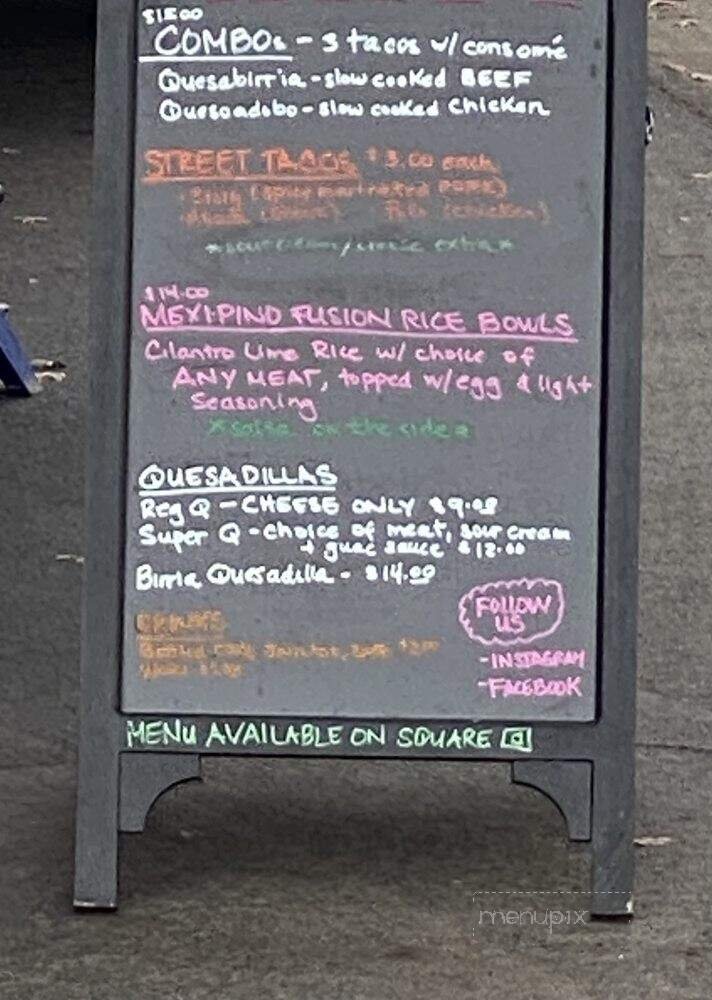 $15.00
COMBOs - 3 tacos w/ consomé
Quesabirria - slow cooked BEEF
Quesoadobo - slow cooked Chicken
STREET TACOS $3.00 each
(chicken)
*sour cream/ extra*
$14.00
MEXIPINO FUSION RICE BOWLS
Cilantro Lime Rice w/ choice of
ANY MEAT, topped w/ egg & light
seasoning
*salsa on the side*
QUESADILLAS
Reg Q - CHEESE ONLY $9.00
Super Q - choice of meat, sour cream
+ guac sauce $12.00
Birria Quesadilla - $14.00
FOLLOW
US
-INSTAGRAM
-FACEBOOK
MENU AVAILABLE ON SQUARE
menupix